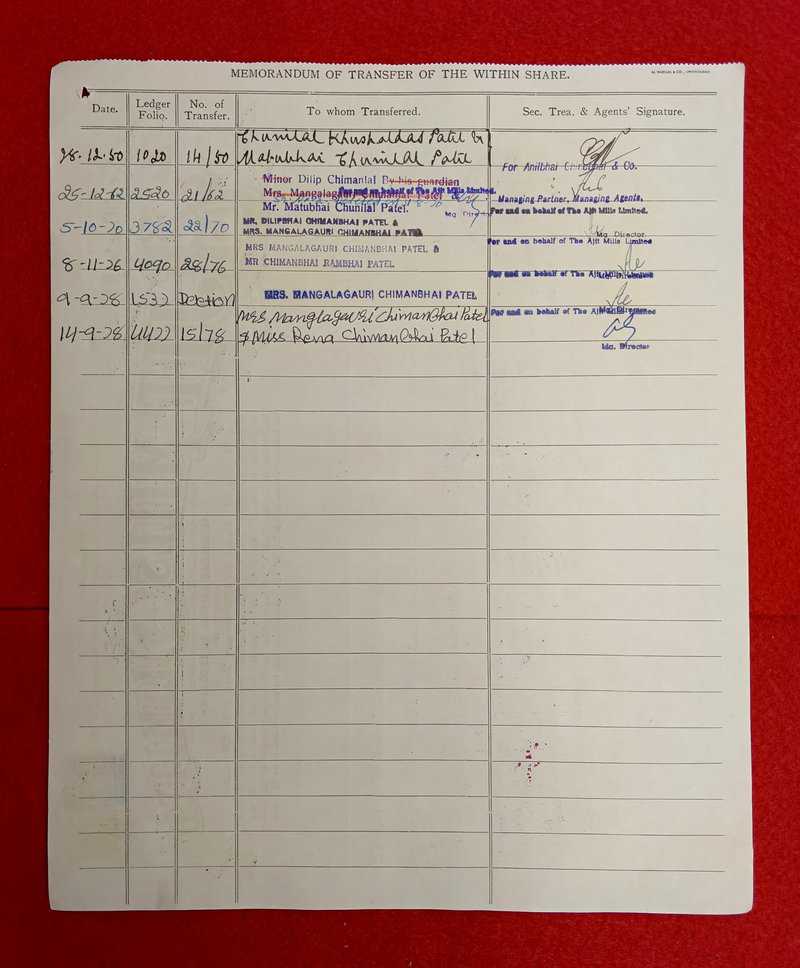 MEMORANDUM OF TRANSFER OF THE WITHIN SHARE.
Date.
Ledger Folio.
No. of Transfer.
To whom Transferred.
Sec. Trea. & Agents' Signature.
28.12.50 1020 14/50 Chunilal Khushaldas Patel &
Matubhai Chunilal Patel
For Anilbhai & Co.
Managing Partner, Managing Agents,
25-12-62 2520 21/62 Minor Dilip Chimanlal By his guardian
Mrs. Mangalagauri Chimanlal Patel
For and on behalf of The Ajit Mills Limited.
Mr. Matubhai Chunilal Patel.
Mg. Director
For and on behalf of The Ajit Mills Limited.
Mg. Director
5-10-70 3782 22/70 MR. DILIPBHAI CHIMANBHAI PATEL &
MRS. MANGALAGAURI CHIMANBHAI PATEL
For and on behalf of The Ajit Mills Limited
Mg. Director
8-11-76 4090 28/76 MRS MANGALAGAURI CHIMANBHAI PATEL &
MR CHIMANBHAI RAMBHAI PATEL
For and on behalf of The Ajit Mills Limited
Mg. Director
9-9-78 1532 Deletion MRS. MANGALAGAURI CHIMANBHAI PATEL
For and on behalf of The Ajit Mills Limited
14-9-78 4422 15/78 Mrs Manglagauri Chimanbhai Patel
& Miss Rena Chimanbhai Patel
Mg. Director